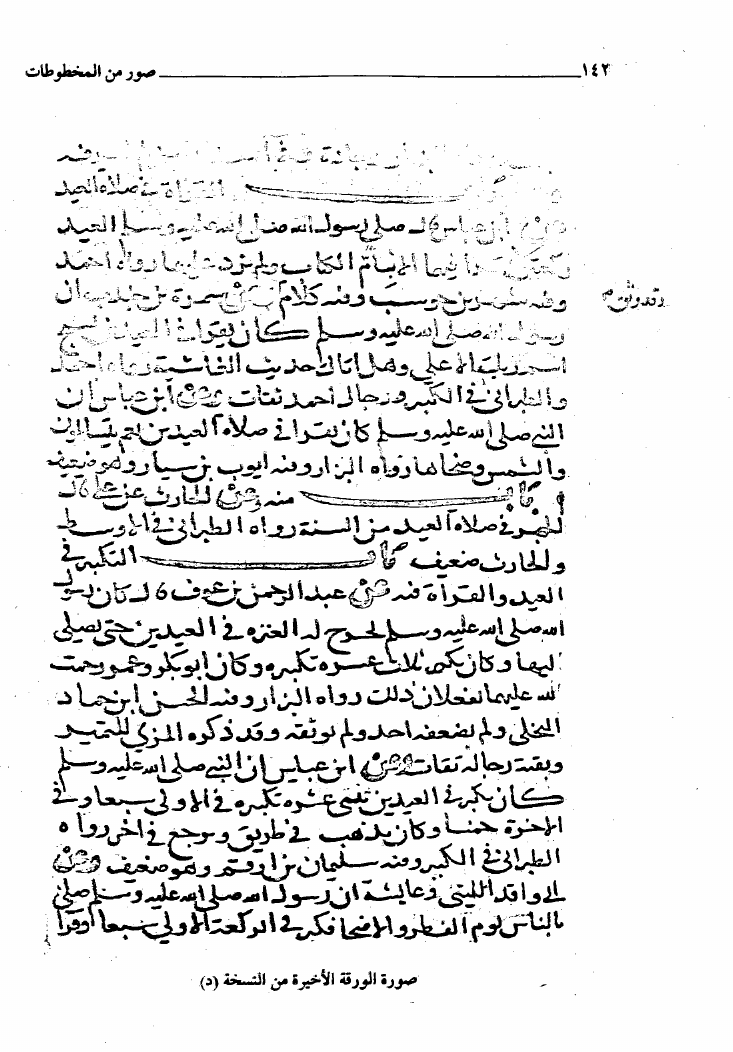 ١٤٢ صور من المخطوطات
القراة في صلاة العيد
ابن عباس قال صلى رسول الله صلى الله عليه وسلم العيد
ركعتين لا يقرا فيهما الا بأم الكتاب ولم يزد عليها رواه احمد
وفيه شهر بن حوشب وفيه كلام وعن سمرة بن جندب ان
وقد وثق
رسول الله صلى الله عليه وسلم كان يقرا في العيدين بسبح
اسم ربك الاعلى وهل اتاك حديث الغاشية رواه احمد
والطبراني في الكبير ورجال احمد ثقات وعن ابن عباس ان
النبي صلى الله عليه وسلم كان يقرا في صلاة العيدين بعم يتسالون
والشمس وضحاها رواه البزار وفيه ايوب بن سيار وهو ضعيف
باب منه وعن الحارث عن علي قال
الجهر في صلاة العيد من السنة رواه الطبراني في الاوسط
والحارث ضعيف باب التكبير في
العيد والقرآة فيه عن عبد الرحمن بن عوف قال كان رسول
الله صلى الله عليه وسلم تخرج له العنزه في العيدين حتى يصلي
اليها وكان يكبر ثلاث عشره تكبيره وكان ابو بكر وعمر رحمت
الله عليهما يفعلان ذلك رواه البزار وفيه الحسن ابن حماد
البجلي ولم يضعفه احد ولم يوثقه وقد ذكره المزي للتمييز
وبقية رجاله ثقات وعن ابن عباس ان النبي صلى الله عليه وسلم
كان يكبر في العيدين ثنتي عشره تكبيره في الاولى سبعا وفي
الاخرة خمسا وكان يذهب في طريق ويرجع في اخرى رواه
الطبراني في الكبير وفيه سليمان بن ارقم وهو ضعيف وعن
ابي واقد الليثي وعايشة ان رسول الله صلى الله عليه وسلم صلى
بالناس يوم الفطر والاضحا فكبر في الركعة الاولى سبعا وقرا
صورة الورقة الأخيرة من النسخة (د)